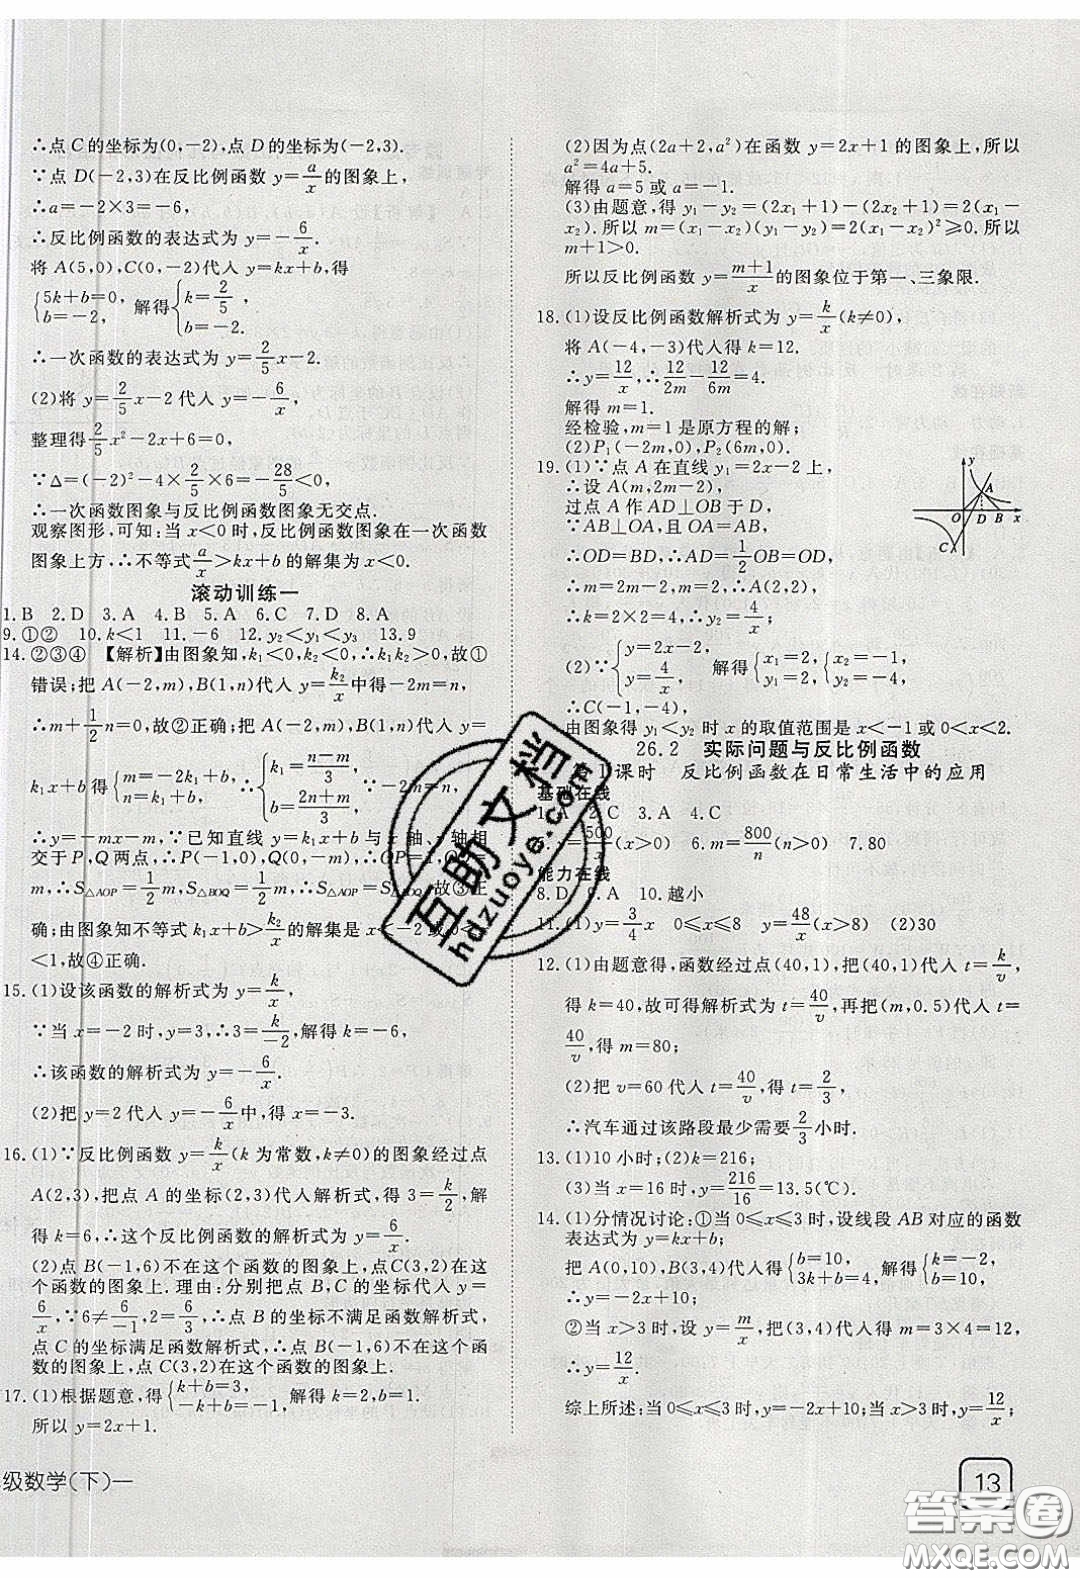 ∴点 C 的坐标为(0,-2),点 D 的坐标为(-2,3).
∵点 D(-2,3)在反比例函数 y=a/x 的图象上,
∴a=-2×3=-6,
∴反比例函数的表达式为 y=-6/x.
将 A(5,0),C(0,-2)代入 y=kx+b,得
{5k+b=0, b=-2, 解得{k=2/5, b=-2.
∴一次函数的表达式为 y=2/5x-2.
(2)将 y=2/5x-2 代入 y=-6/x,
整理得2/5x²-2x+6=0,
∵Δ=(-2)²-4×2/5×6=-28/5<0,
∴一次函数图象与反比例函数图象无交点.
观察图形,可知:当 x<0 时,反比例函数图象在一次函数
图象上方,∴不等式a/x>kx+b 的解集为x<0.
滚动训练一
1.B 2.D 3.A 4.B 5.A 6.C 7.D 8.A
9.①② 10.k<1 11.-6 12.y₂<y₁<y₃ 13.9
14.②③④ 【解析】由图象知,k₁<0,k₂<0,∴k₁k₂>0,故①
错误;把 A(-2,m),B(1,n)代入 y=k₂/x中得-2m=n,
∴m+1/2n=0,故②正确;把 A(-2,m),B(1,n)代入 y=
k₁x+b得{m=-2k₁+b, n=k₁+b, ∴{k₁=(n-m)/3, b=(2n+m)/3.
∴y=-mx-m,∵已知直线 y=k₁x+b 与 x 轴、y轴相
交于 P,Q 两点,∴P(-1,0),Q(0,-m),∴OP=1,OQ=
m,∴S△AOP=1/2m,S△BOQ=1/2m,∴S△AOP=S△BOQ,故③正
确;由图象知不等式 k₁x+b>k₂/x的解集是 x<-2 或0<x
<1,故④正确.
15.(1)设该函数的解析式为 y=k/x,
∵当 x=-2 时,y=3,∴3=k/-2,解得 k=-6,
∴该函数的解析式为 y=-6/x.
(2)把 y=2 代入 y=-6/x中,得 x=-3.
16.(1)∵反比例函数 y=k/x(k 为常数,k≠0)的图象经过点
A(2,3),把点 A 的坐标(2,3)代入解析式,得 3=k/2,解
得 k=6,∴这个反比例函数的解析式为 y=6/x.
(2)点 B(-1,6)不在这个函数的图象上,点 C(3,2)在这
个函数的图象上.理由:分别把点 B,C 的坐标代入 y=
6/x,∵6≠6/-1,2=6/3,∴点 B 的坐标不满足函数解析式,
点 C 的坐标满足函数解析式,∴点 B(-1,6)不在这个函
数的图象上,点 C(3,2)在这个函数的图象上.
17.(1)根据题意,得{k+b=3, -k+b=-1, 解得 k=2,b=1.
所以 y=2x+1.
级数学(下)一
(2)因为点(2a+2,a²)在函数 y=2x+1 的图象上,所以
a²=4a+5.
解得 a=5 或 a=-1.
(3)由题意,得 y₁-y₂=(2x₁+1)-(2x₂+1)=2(x₁-
x₂).所以 m=(x₁-x₂)(y₁-y₂)=2(x₁-x₂)²≥0.所以
m+1>0.
所以反比例函数 y=(m+1)/x的图象位于第一、三象限.
18.(1)设反比例函数解析式为 y=k/x(k≠0),
将 A(-4,-3)代入得 k=12.
∴y=12/x,∴12/2m-12/6m=4.
解得 m=1.
经检验,m=1 是原方程的解;
(2)P₁(-2m,0),P₂(6m,0).
19.(1)∵点 A 在直线 y₁=2x-2 上,
∴设 A(m,2m-2),
过点 A 作 AD⊥OB 于 D,
∵AB⊥OA,且 OA=AB,
∴OD=BD,∴AD=1/2OB=OD,
∴m=2m-2,∴m=2,
∴A(2,2),∴k=2×2=4,∴y₂=4/x;
(2)∵{y=2x-2, y=4/x, 解得{x₁=2, y₁=2, {x₂=-1, y₂=-4,
∴C(-1,-4),
由图象得 y₁<y₂ 时 x 的取值范围是 x<-1 或0<x<2.
y
A
O D B x
C
26.2 实际问题与反比例函数
第1课时 反比例函数在日常生活中的应用
基础在线
1.A 2.C 3.A 4.C
5.y=500/x(x>0) 6.m=800/n(n>0) 7.80
能力在线
8.D 9.A 10.越小
11.(1)y=3/4x 0≤x≤8 y=48/x(x>8) (2)30
12.(1)由题意得,函数经过点(40,1),把(40,1)代入 t=k/v,
得 k=40,故可得解析式为 t=40/v,再把(m,0.5)代入 t=
40/v,得 m=80;
(2)把 v=60 代入 t=40/v,得 t=2/3,
∴汽车通过该路段最少需要2/3小时.
13.(1)10 小时;(2)k=216;
(3)当 x=16 时,y=216/16=13.5(℃).
14.(1)分情况讨论:①当 0≤x≤3 时,设线段 AB 对应的函数
表达式为 y=kx+b;
把 A(0,10),B(3,4)代入得{b=10, 3k+b=4, 解得{k=-2, b=10,
∴y=-2x+10;
②当 x>3 时,设 y=m/x,把(3,4)代入得 m=3×4=12,
∴y=12/x.
综上所述:当 0≤x≤3 时,y=-2x+10;当 x>3 时,y=12/x;
13
互助文档
hdzuoye.com
答案卷
MXQE.COM